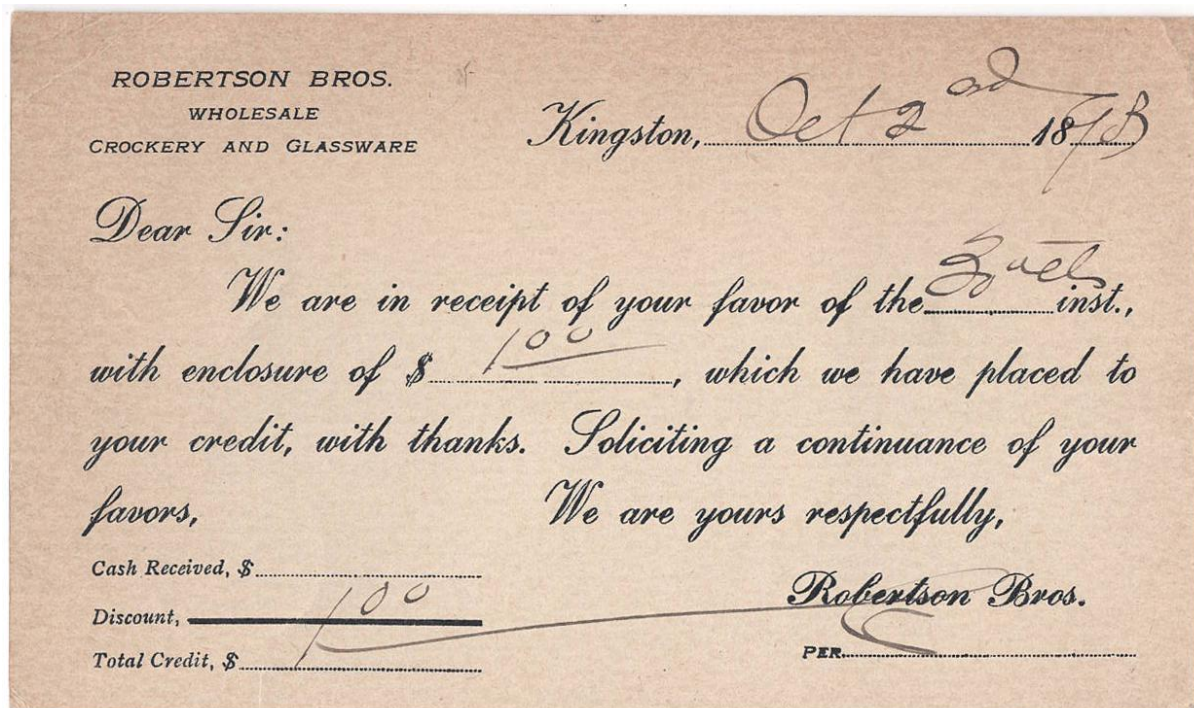 ROBERTSON BROS.
WHOLESALE
CROCKERY AND GLASSWARE
Kingston, Oct 2nd 189
Dear Sir:
We are in receipt of your favor of the 30th inst.,
with enclosure of $ 1.00, which we have placed to
your credit, with thanks. Soliciting a continuance of your
favors, We are yours respectfully,
Cash Received, $
Discount, 1.00
Total Credit, $
Robertson Bros.
PER